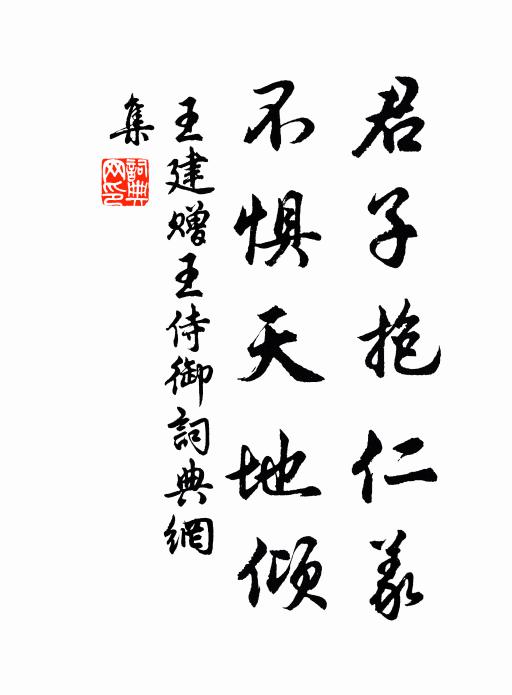 君子抱仁義
不懼天地傾
王建贈王侍御詞典網
集
詞典
网印